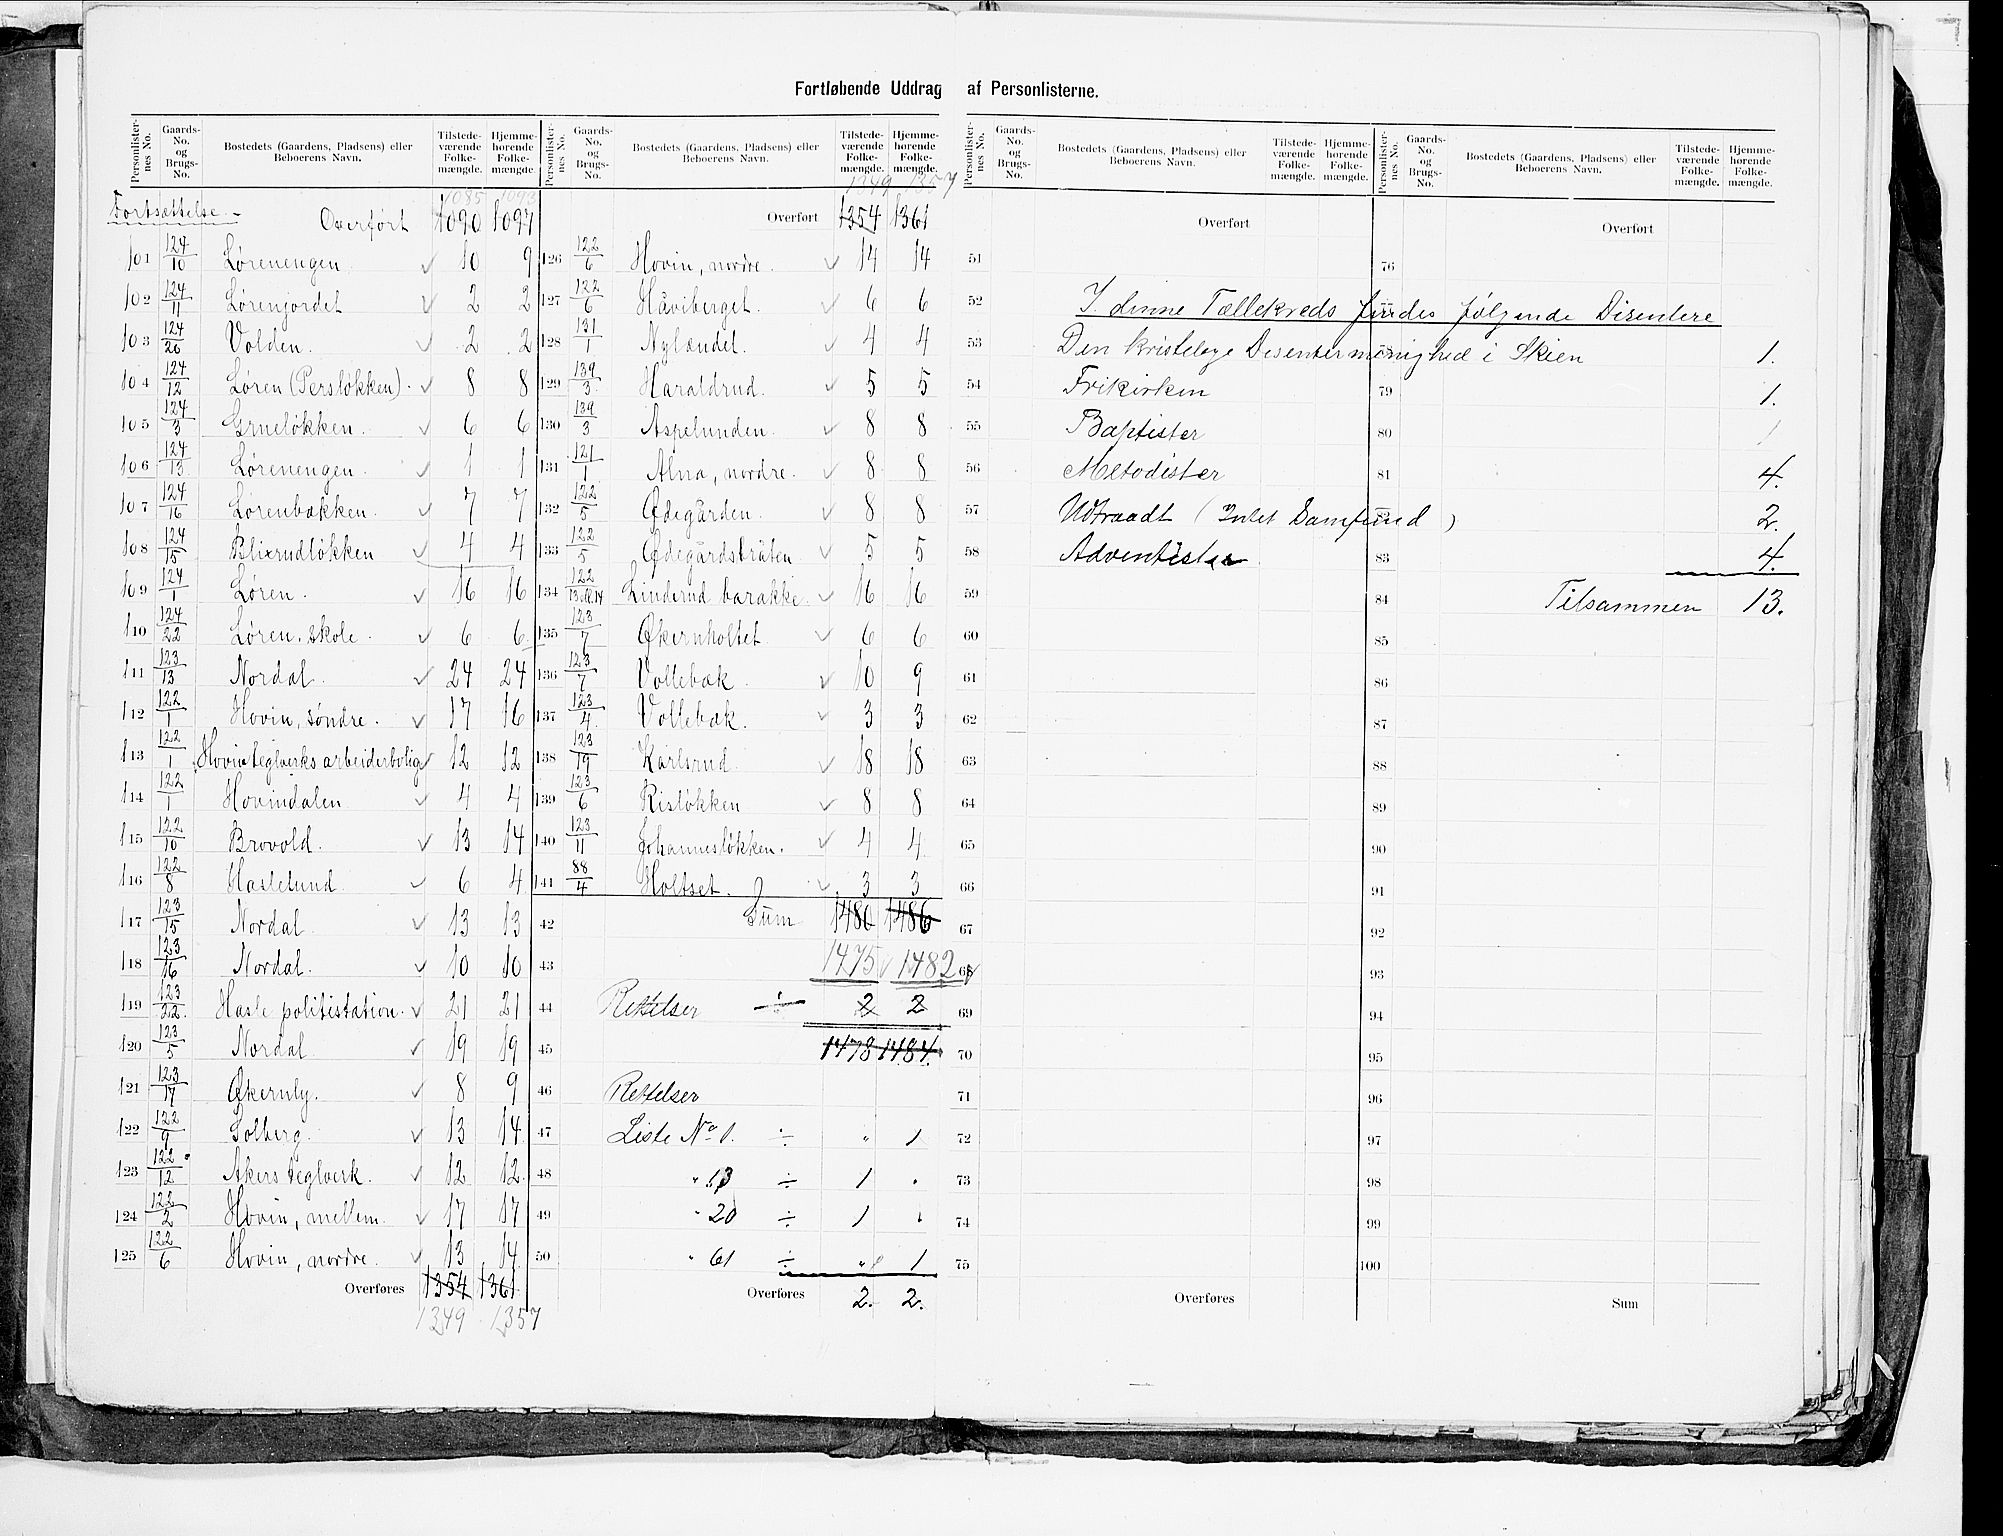 Fortløbende Uddrag af Personlisterne.
Personlisternes No. Gaards-No. og Brugs-No. Bostedets (Gaardens, Pladsens) eller Beboerens Navn. Tilstedeværende Folkemængde. Hjemmehørende Folkemængde.
1085 1093
Fortsættelse. Overført 1090 1097
101 124/10 Lørenengen 10 9
102 124/11 Lørenjordet 2 2
103 124/20 Volden. 2 2
104 124/12 Løren (Persløkken). 8 8
105 124/3 Grueløkken. 6 6
106 124/13 Lørenengen 1 1
107 124/16 Lørenbakken. 7 7
108 124/15 Blixrudløkken 4 4
109 124/1 Løren. 16 16
110 124/22 Løren. skole. 6 6
111 123/13 Nordal. 24 24
112 122/1 Hovin, søndre. 17 16
113 122/1 Hovin teglverks arbeiderbolig 12 12
114 122/1 Hovindalen 4 4
115 122/10 Brovold. 13 14
116 122/8 Haslelund. 6 4
117 123/15 Nordal 13 13
118 123/16 Nordal. 10 10
119 123/22 Hasle politistation. 21 21
120 123/5 Nordal 19 19
121 123/17 Økernly. 8 9
122 122/9 Solberg. 13 14
123 122/12 Akers teglverk. 12 12
124 122/2 Hovin, mellem. 17 17
125 122/6 Hovin, nordre. 13 14
Overføres 1354 1361
1349 1357
Personlisternes No. Gaards-No. og Brugs-No. Bostedets (Gaardens, Pladsens) eller Beboerens Navn. Tilstedeværende Folkemængde. Hjemmehørende Folkemængde.
1349 1357
Overført 1354 1361
126 122/6 Hovin, nordre. 14 14
127 122/6 Håviberget. 6 6
128 131/1 Nylændet. 4 4
129 139/3 Haraldrud. 5 5
130 139/3 Aspelunden. 8 8
131 121/1 Alna, nordre. 8 8
132 122/5 Ødegården. 8 8
133 122/5 Ødegårdsbråten. 5 5
134 122/13 14 Linderud barakke. 16 16
135 123/7 Økernholtet. 6 6
136 123/7 Vollebæk. 10 9
137 123/4 Vollebæk. 3 3
138 123/19 Karlsrud. 18 18
139 123/6 Risløkken 8 8
140 123/11 Johannesløkken. 4 4
141 88/4 Holtset. 3 3
42 Sum 1480 1486
43 1475 1482
44 Rettelser ÷ 2 2
45 1478 1484
46 Rettelser
47 Liste No 1. ÷ " 1
48 " 13 ÷ 1 "
49 " 20 ÷ 1 "
50 " 61 ÷ " 1
Overføres 2. 2.
Personlisternes No. Gaards-No. og Brugs-No. Bostedets (Gaardens, Pladsens) eller Beboerens Navn. Tilstedeværende Folkemængde. Hjemmehørende Folkemængde.
Personlisternes No. Gaards-No. og Brugs-No. Bostedets (Gaardens, Pladsens) eller Beboerens Navn. Tilstedeværende Folkemængde. Hjemmehørende Folkemængde.
Overført Overført
51 76
52 I denne Tællekreds findes følgende Disentere
53 Den kristelige Desentermenighed i Skien 78 1.
54 Frikirken 79 1.
55 Baptister 80 1
56 Metodister 81 4.
57 Udtraadt (Intet Samfund) 2.
58 Adventister 83 4.
59 84 Tilsammen 13.
60 85
61 86
62 87
63 88
64 89
65 90
66 91
67 92
68 93
69 94
70 95
71 96
72 97
73 98
74 99
75 100
Overføres Sum